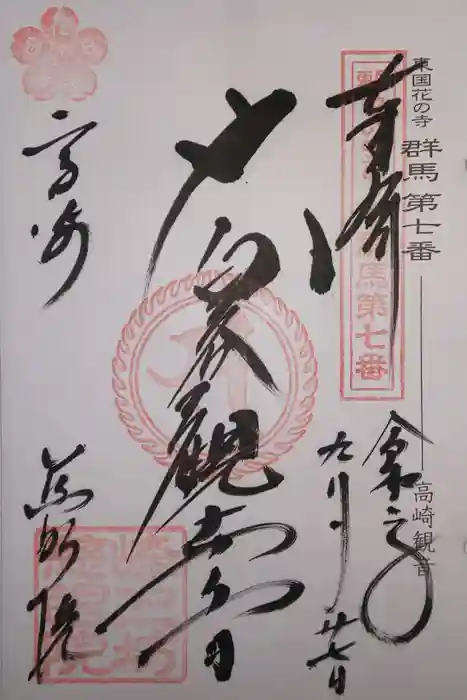 東国花の寺 群馬第七番 高崎観音
奉拝
馬第七番
令和元
九月廿七日
白衣観世音
高崎
慈眼院